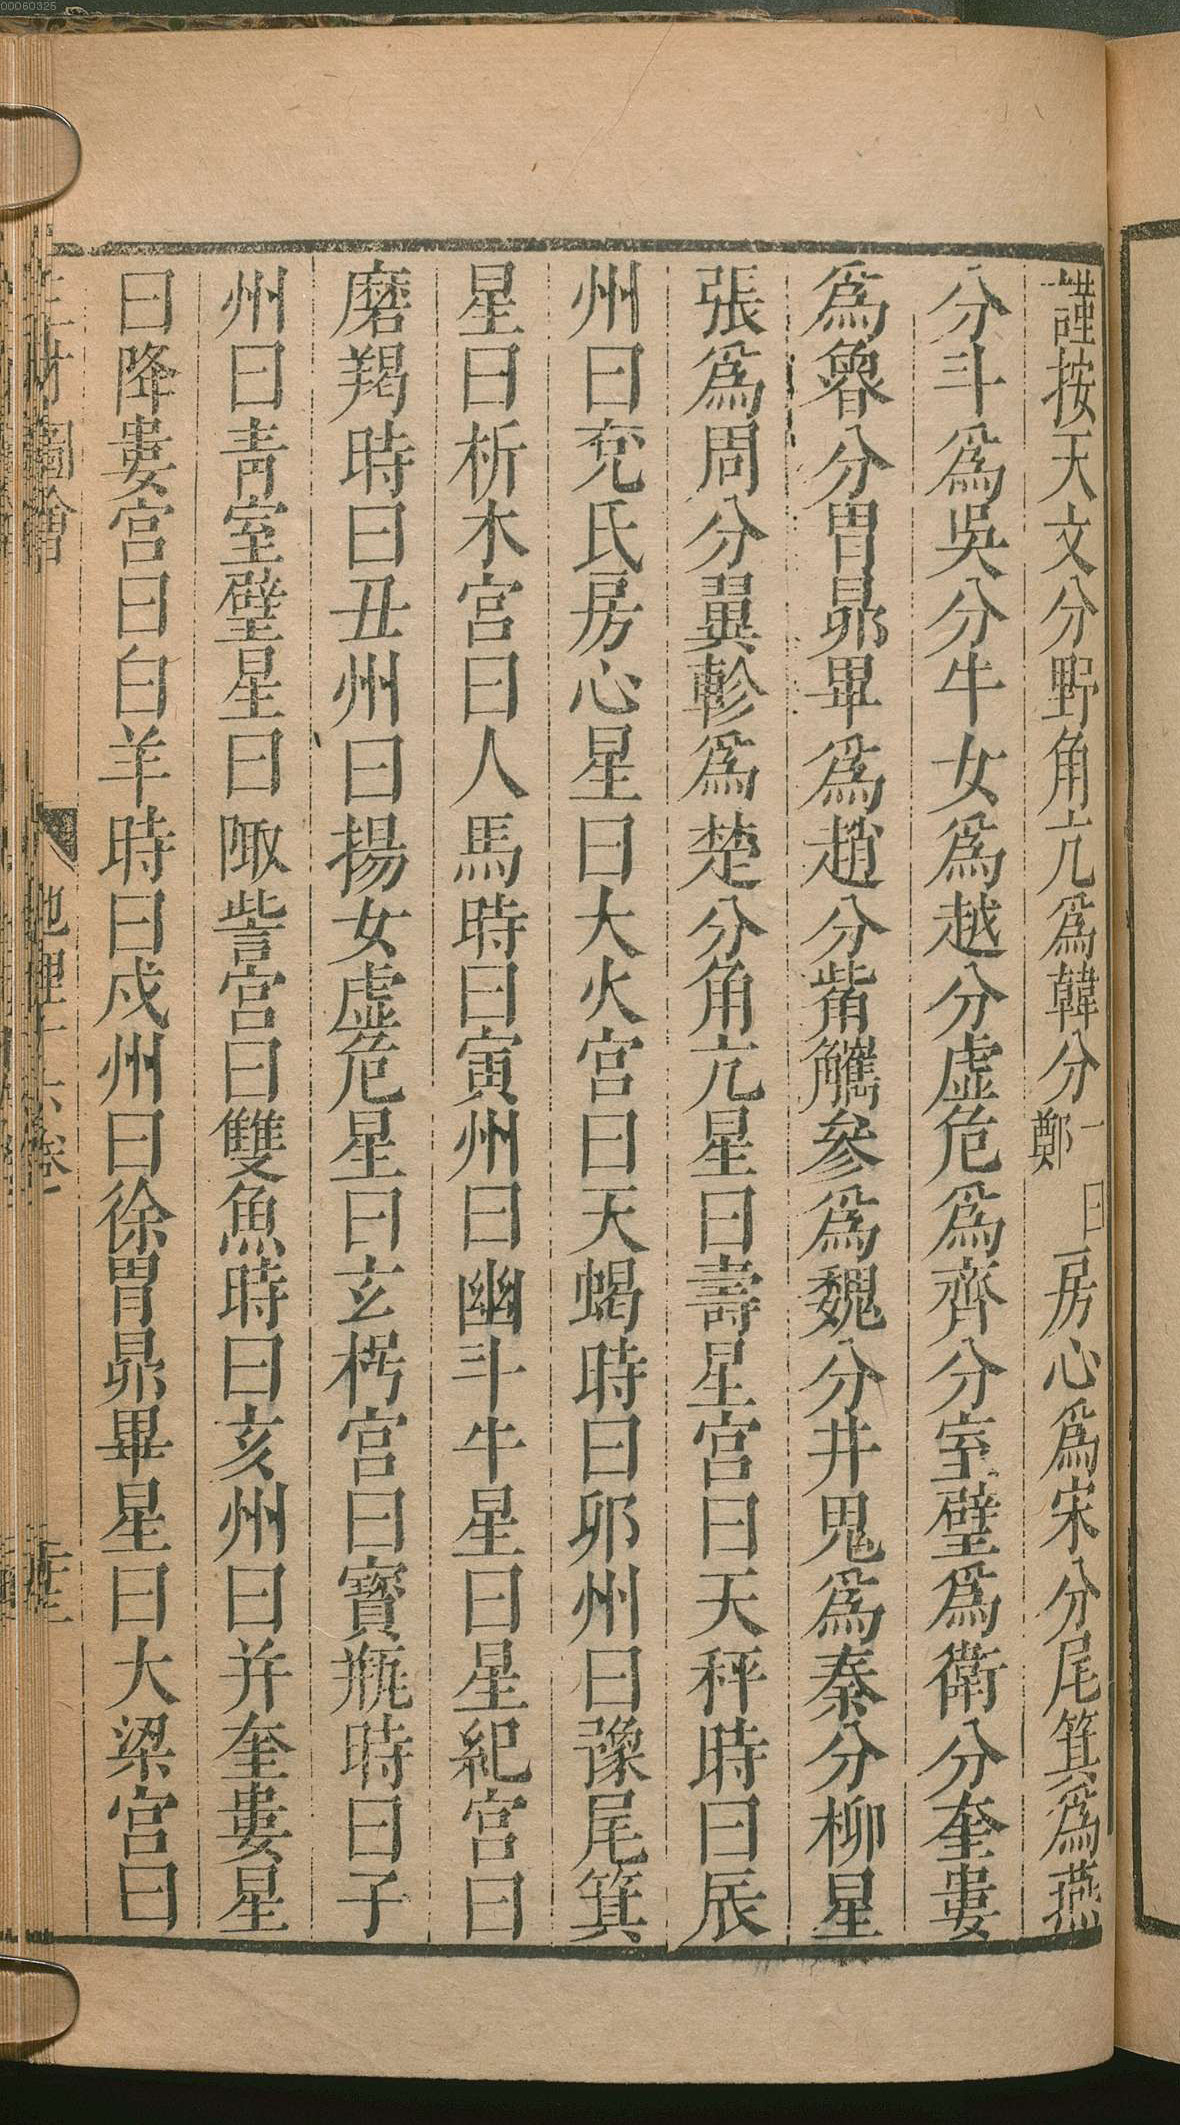 00060325
謹按天文分野角亢爲韓分一曰鄭房心爲宋分尾箕爲燕
分斗爲吳分牛女爲越分虛危爲齊分室壁爲衛分奎婁
爲魯分胃昴畢爲趙分觜觿參爲魏分井鬼爲秦分柳星
張爲周分翼軫爲楚分角亢星曰壽星宮曰天秤時曰辰
州曰兗氐房心星曰大火宮曰天蝎時曰卯州曰豫尾箕
星曰析木宮曰人馬時曰寅州曰幽斗牛星曰星紀宮曰
磨羯時曰丑州曰揚女虛危星曰玄枵宮曰寶瓶時曰子
州曰青室壁星曰陬訾宮曰雙魚時曰亥州曰并奎婁星
曰降婁宮曰白羊時曰戌州曰徐胃昴畢星曰大梁宮曰
圖會
地理十六卷